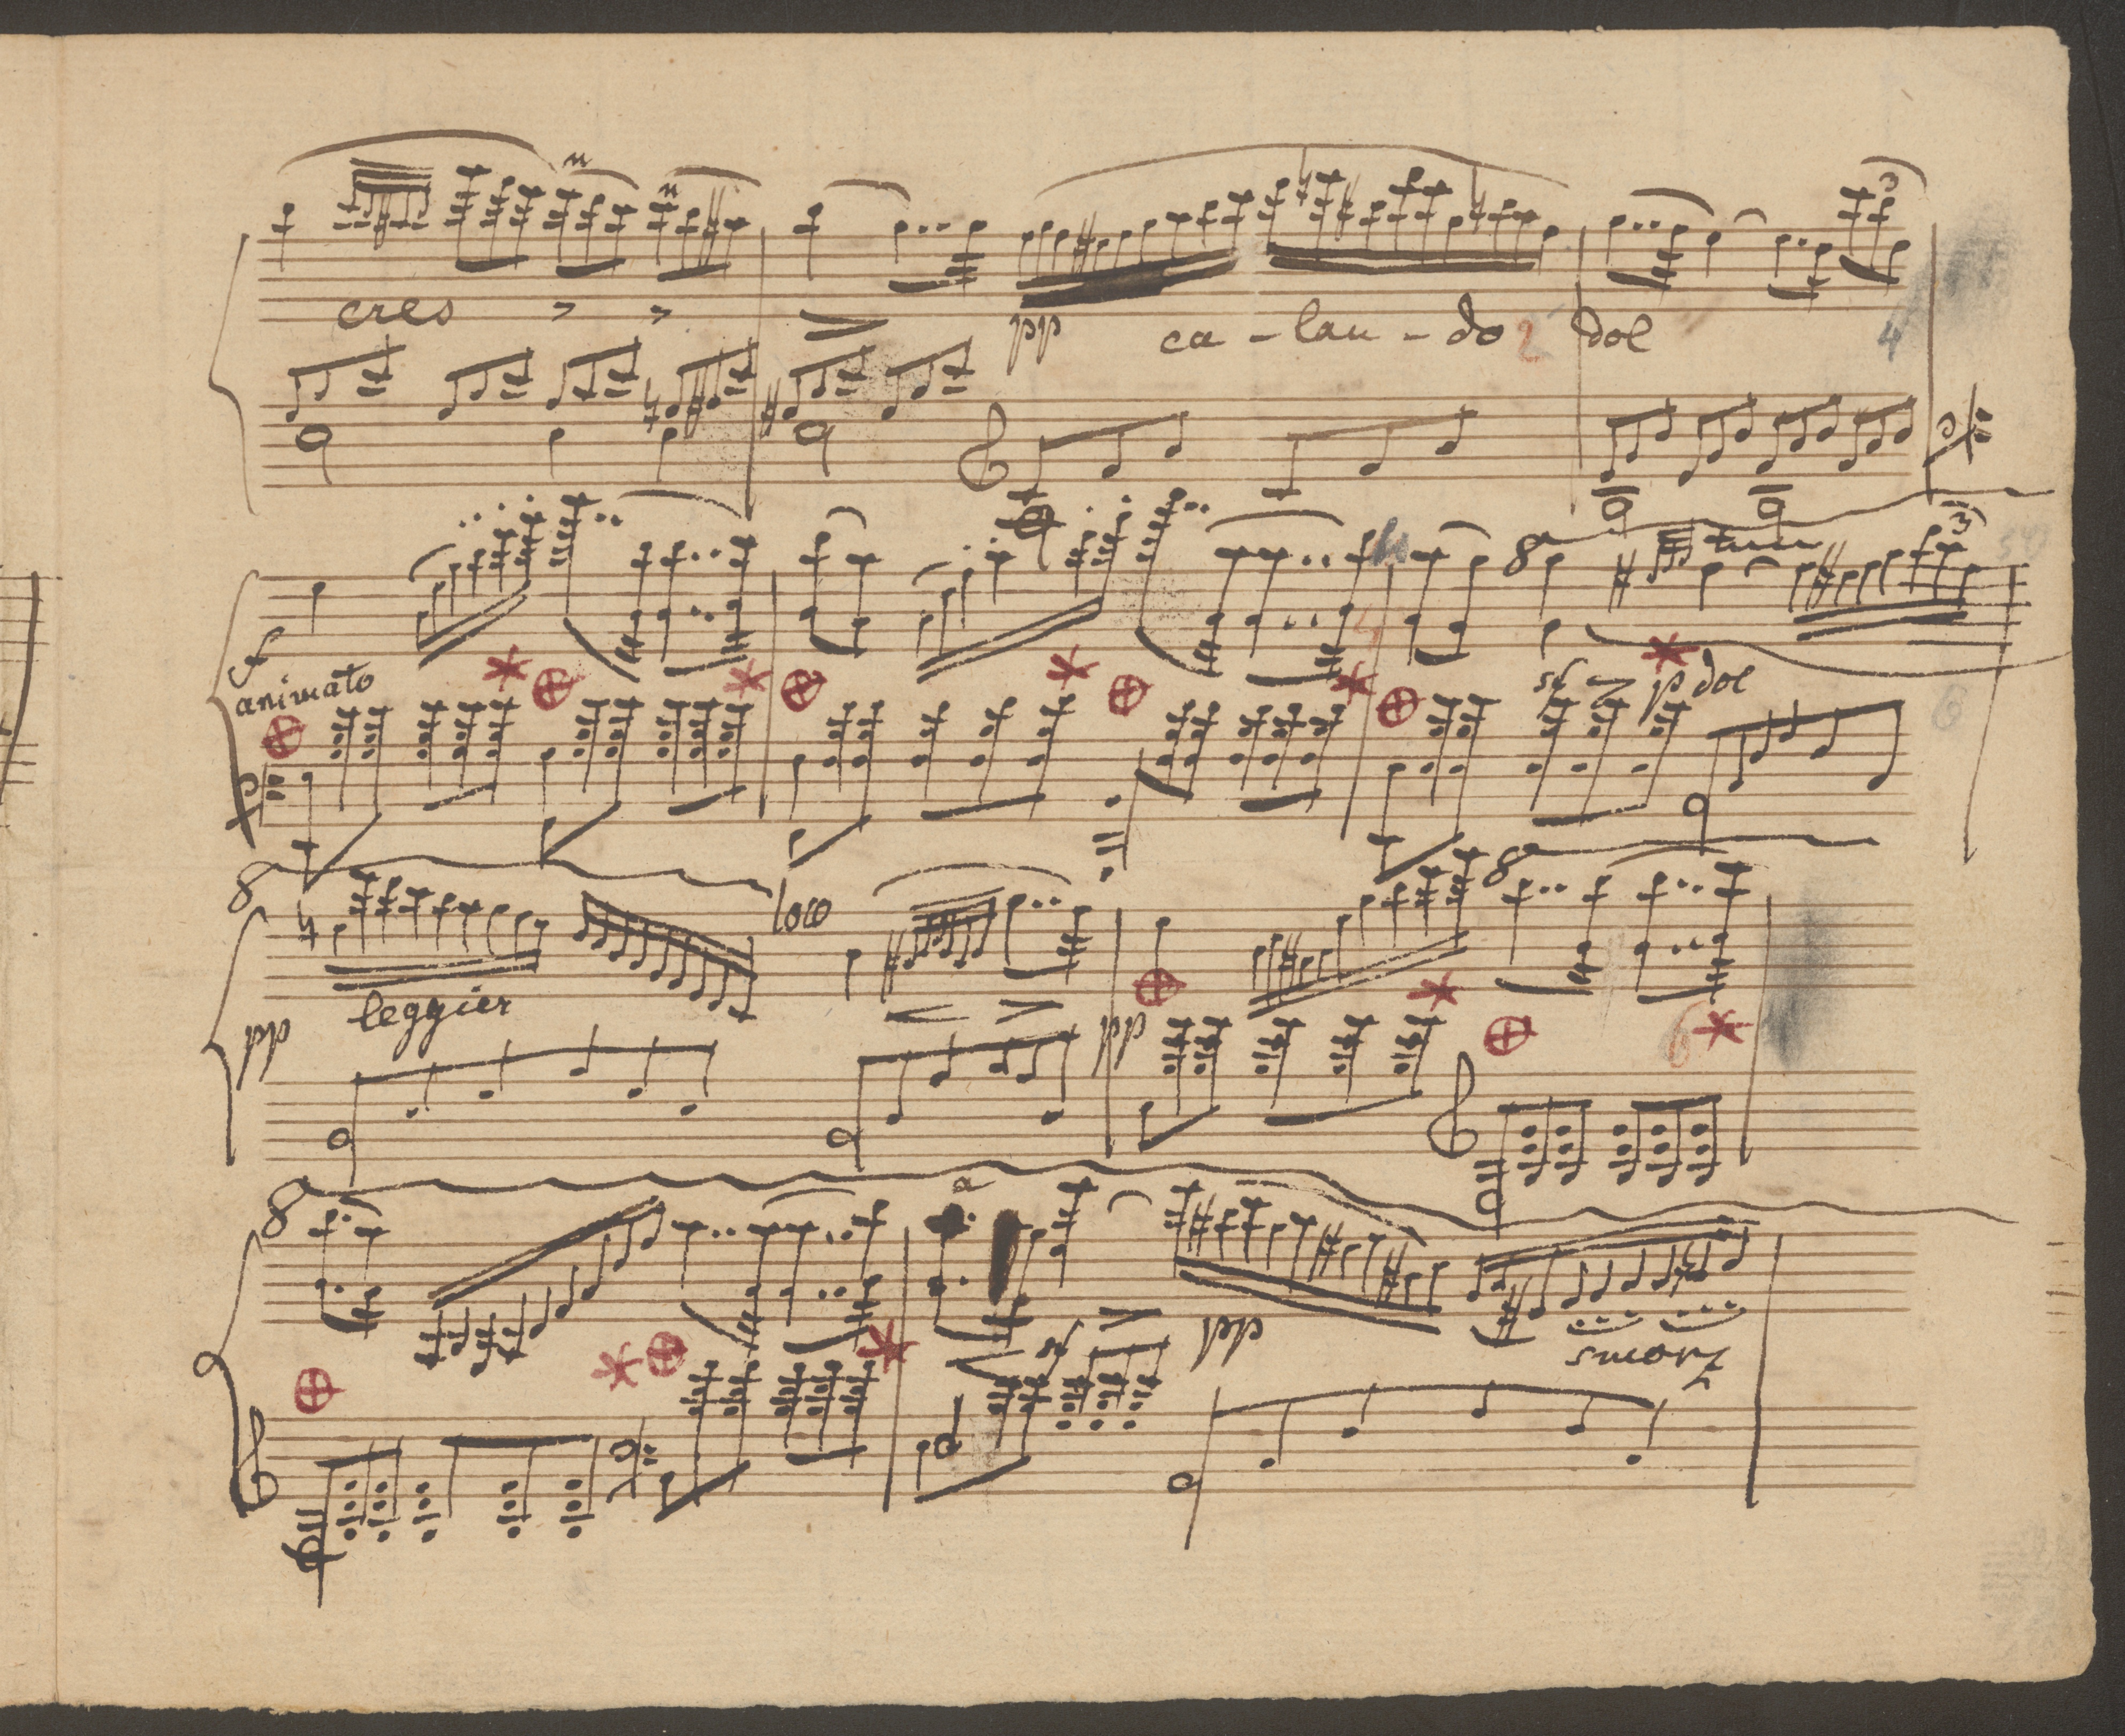 cres
pp ca - lan - do 2 dol 4
3
8 3
f
animato
sf p dol
6
8 loco 8
leggier
pp pp
6
8
sf pp
smorz